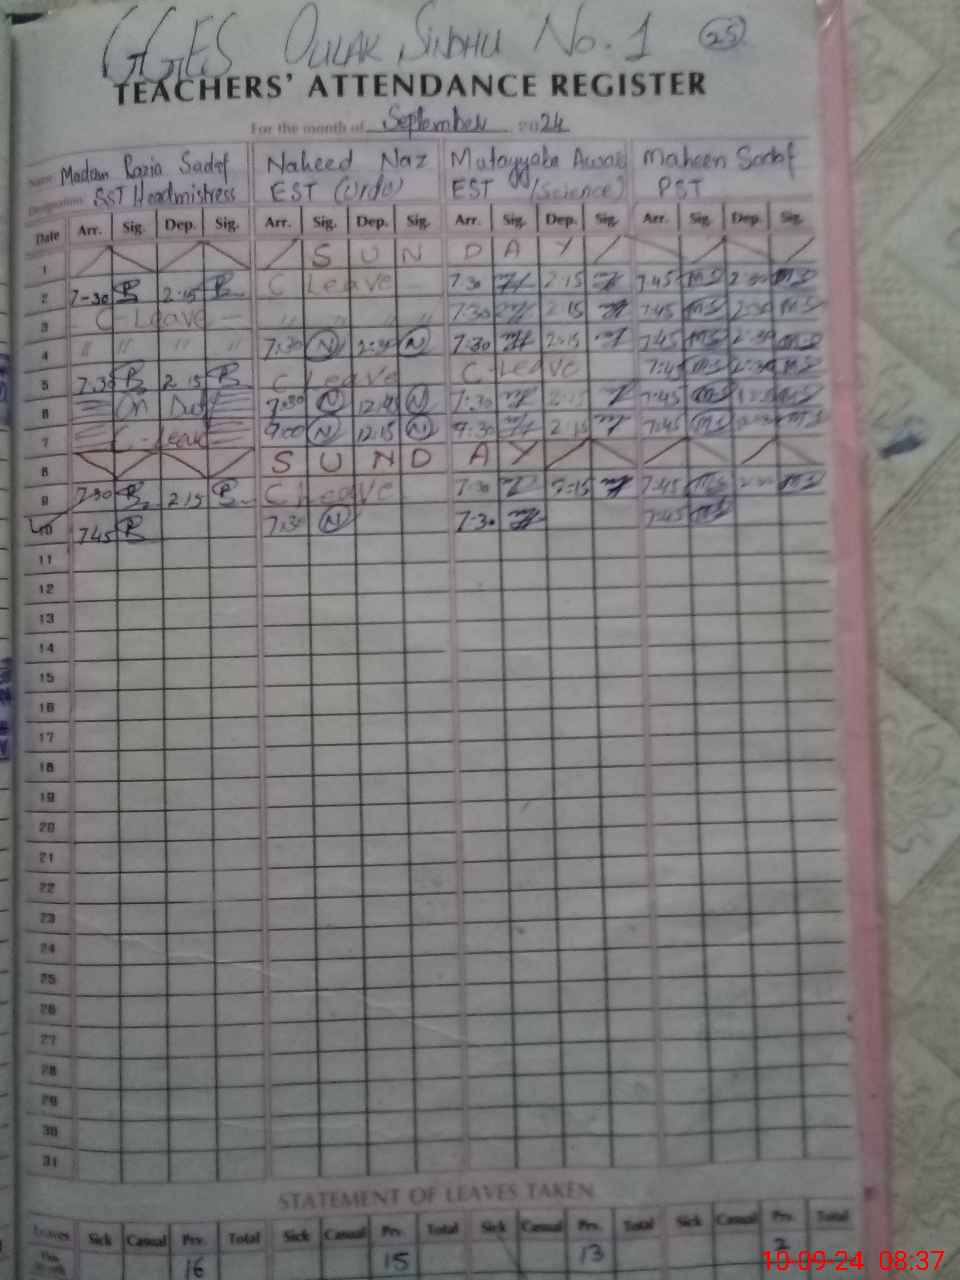 GGES OULAK SINDHU No. 1 25
TEACHERS' ATTENDANCE REGISTER
For the month of September 2024
Name Madam Razia Sadaf Naheed Naz Maheen Sadaf
Designation SST Headmistress EST (Urdu) EST (Science) PST
Date Arr. Sig. Dep. Sig. Arr. Sig. Dep. Sig. Arr. Sig. Dep. Sig. Arr. Sig. Dep. Sig.
1 S U N D A Y
2 7-30 2-15 C Leave 7-30 2-15 7-45 MS MS
3 C-Leave - " " " " 7-30 2-15 7-45 MS 2-30 MS
4 " " " " 7:30 N N 7-30 2-15 7-45 MS 2-30 MS
5 7.30 2-15 C Leave C-Leave 7:45 MS 2-30 MS
6 On Duty 7:30 N N 7:30 7:45 MS MS
7 C-Leave 9:00 N 12:15 N 2:15 7:45 MS MS
8 S U N D A Y
9 7-30 2-15 C Leave 7-30 2-15 7-45 MS 2-30 MS
10 7.45 7:30 N 7-30 7-45 MS
11
12
13
14
15
16
17
18
19
20
21
22
23
24
25
26
27
28
29
30
31
STATEMENT OF LEAVES TAKEN
Leaves Sick Casual Prv. Total Sick Casual Prv. Total Sick Casual Prv. Total Sick Casual Prv. Total
16 15 13 2
10-09-24 08:37